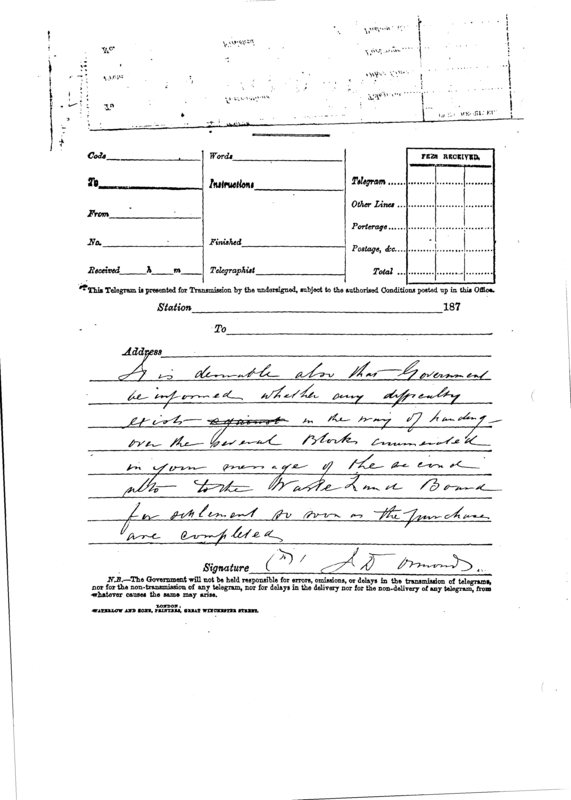 Code Words FEES RECEIVED.
To Instructions Telegram
Other Lines
From Porterage
No. Finished Postage, &c.
Received h m Telegraphist Total
This Telegram is presented for Transmission by the undersigned, subject to the authorised Conditions posted up in this Office.
Station 187
To
Address
It is desirable also that Government
be informed whether any difficulty
exists against in the way of handing
over the several Blocks enumerated
in your message of the second
ulto to the Waste Land Board
for settlement so soon as the purchases
are completed
Signature J D Ormond
N.B.—The Government will not be held responsible for errors, omissions, or delays in the transmission of telegrams,
nor for the non-transmission of any telegram, nor for delays in the delivery nor for the non-delivery of any telegram, from
whatever causes the same may arise.
LONDON:
WATERLOW AND SONS, PRINTERS, GREAT WINCHESTER STREET.